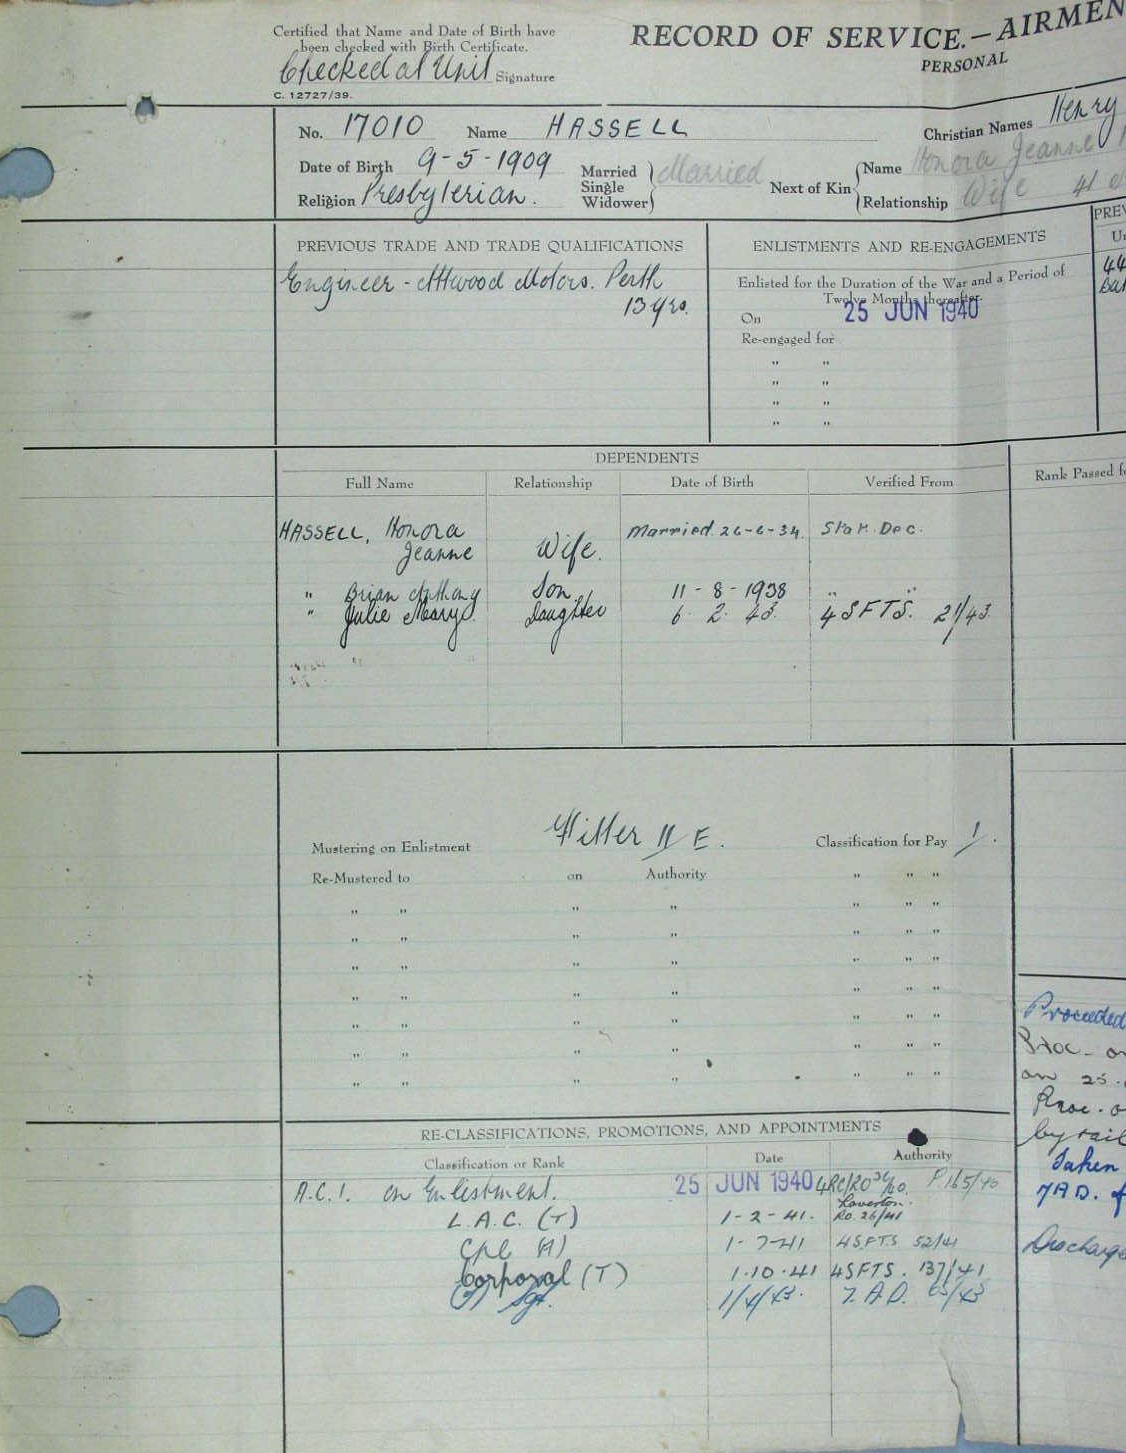 Certified that Name and Date of Birth have
been checked with Birth Certificate.
Checked at Unit Signature
C. 12727/39.
RECORD OF SERVICE.—AIRMEN
PERSONAL
No. 17010 Name HASSELL Christian Names Henry
Date of Birth 9-5-1909 Married Single Widower Married Next of Kin Name Honora Jeanne
Religion Presbyterian. Relationship Wife 41
PREVIOUS TRADE AND TRADE QUALIFICATIONS
Engineer - Attwood Motors. Perth
13 yrs.
ENLISTMENTS AND RE-ENGAGEMENTS
Enlisted for the Duration of the War and a Period of
Twelve Months thereafter.
On 25 JUN 1940
Re-engaged for
" "
" "
" "
" "
PREV
Un
44
DEPENDENTS
Full Name Relationship Date of Birth Verified From
HASSELL, Honora Married 26-6-34 Stat. Dec.
Jeanne Wife.
" Brian Anthony Son. 11-8-1938 " "
" Julie Mary. Daughter 6. 2. 43. 4 SFTS. 21/43.
Rank Passed f
Mustering on Enlistment Fitter II E. Classification for Pay 1.
Re-Mustered to on Authority " " "
" " " " " " "
" " " " " " "
" " " " " " "
" " " " " " "
" " " " " " "
" " " " " " "
" " " " " " "
RE-CLASSIFICATIONS, PROMOTIONS, AND APPOINTMENTS
Classification or Rank Date Authority
A.C.1. on Enlistment. 25 JUN 1940 4RC/RO 36/40. P.165/40
L.A.C. (T) 1-2-41. Laverton. RO. 26/41
Cpl (A) 1-7-41 4SFTS 52/41
Corporal (T) 1.10.41 4SFTS. 137/41
Sgt. 1/4/43. 7. A.D. 65/43
Proceeded
Proc. on
on 25.
Proc. o
by rail
Taken
7AD.
Discharge